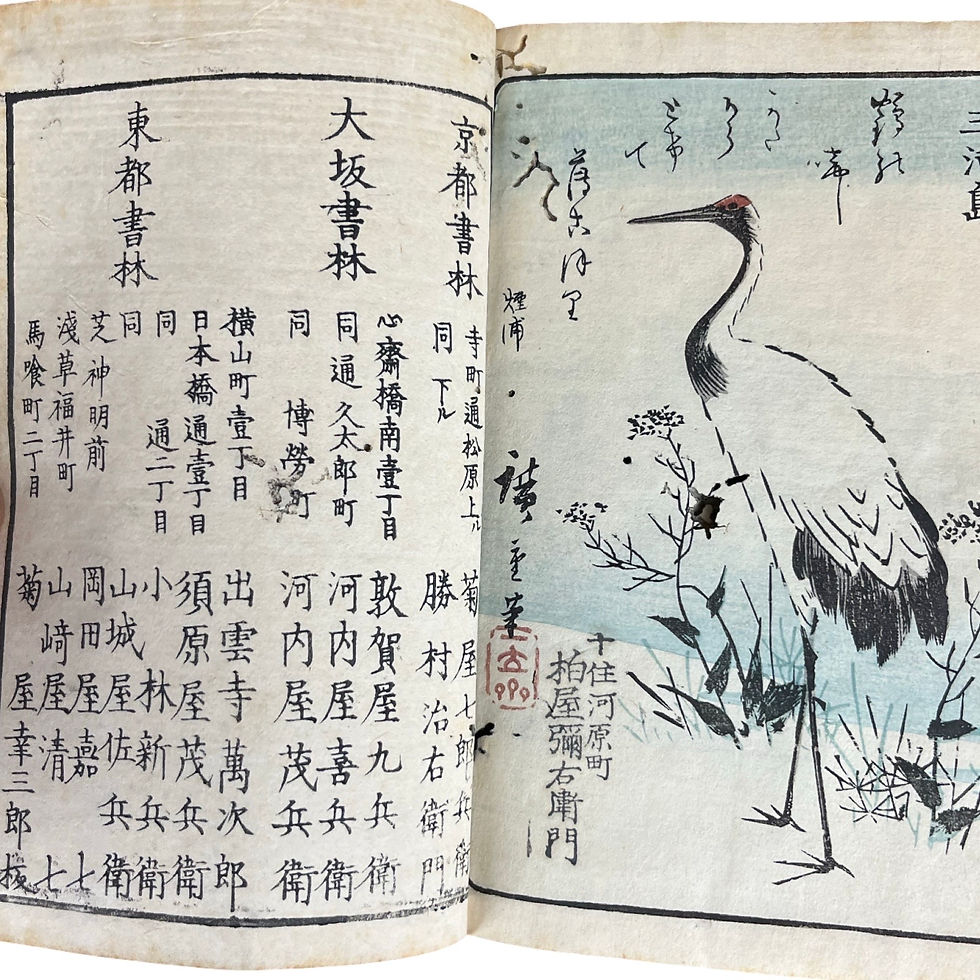 三河島
鶴の
啼
薄ごほり
煙浦
廣重筆
千住河原町
柏屋彌右衛門
京都書林
寺町通松原上ル 菊屋七郎兵衛
同 下ル 勝村治右衛門
大坂書林
心齋橋南壹丁目 敦賀屋九兵衛
同通久太郎町 河内屋喜兵衛
同 博勞町 河内屋茂兵衛
東都書林
横山町壹丁目 出雲寺萬次郎
日本橋通壹丁目 須原屋茂兵衛
同 通二丁目 小林新兵衛
同 山城屋佐兵衛
芝神明前 岡田屋嘉七
淺草福井町 山﨑屋清七
馬喰町二丁目 菊屋幸三郎